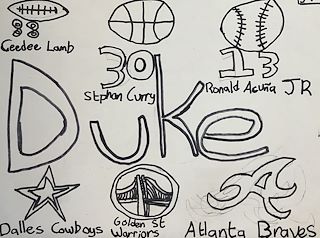 88
Ceedee Lamb
30
Stphan Curry
13
Ronald Acuña JR
Duke
Dalles Cowboys
Golden St
Warriors
A
Atlanta Braves